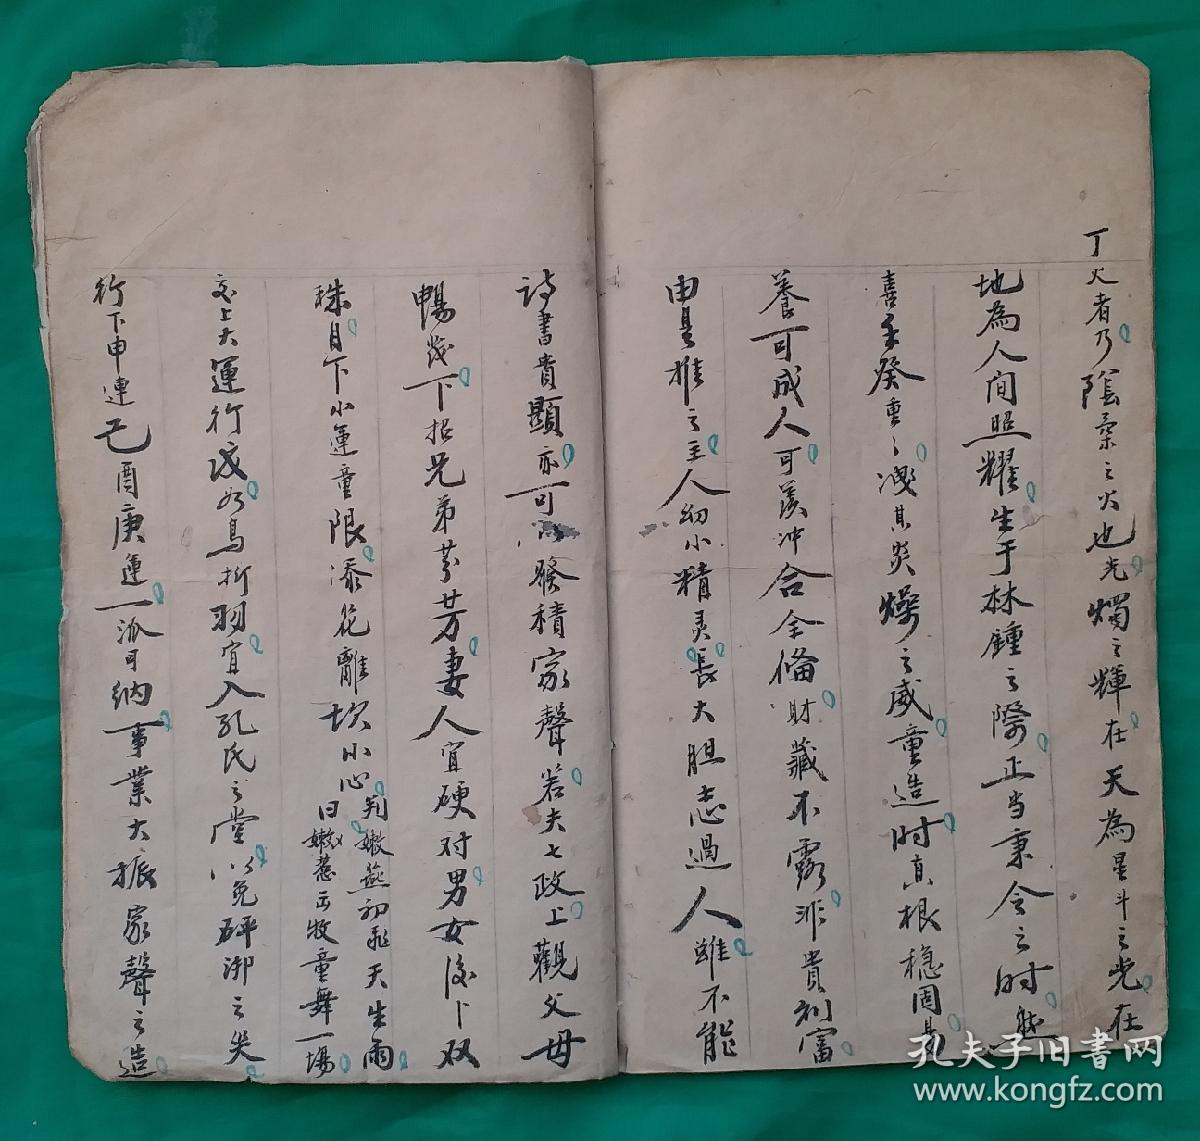 丁火者乃陰柔之火也光燭之輝在天為星斗之光在
地為人間照耀生于林鍾之際正当秉令之时然
喜壬癸重〻洩其炎燥之威童造时真根稳固易
養可成人可羨冲合全備財藏不露非貴則富
由是推之主人幼小精灵長大胆志過人雖不能
詩書貴顯亦可發積家聲若夫七政上觀父母
暢茂下招兄弟芬芳妻人宜硬对男女後卜双
珠目下小運童限添花離坎小心
判嫩燕初飛天生雨
曰嫩蕙正牧童舞一場
交上大運行戌如鳥折羽宜入孔氏之堂以免砰湃之失
行下申連己酉庚運一派可納事業大振家聲之造
孔夫子旧书网
www.kongfz.com